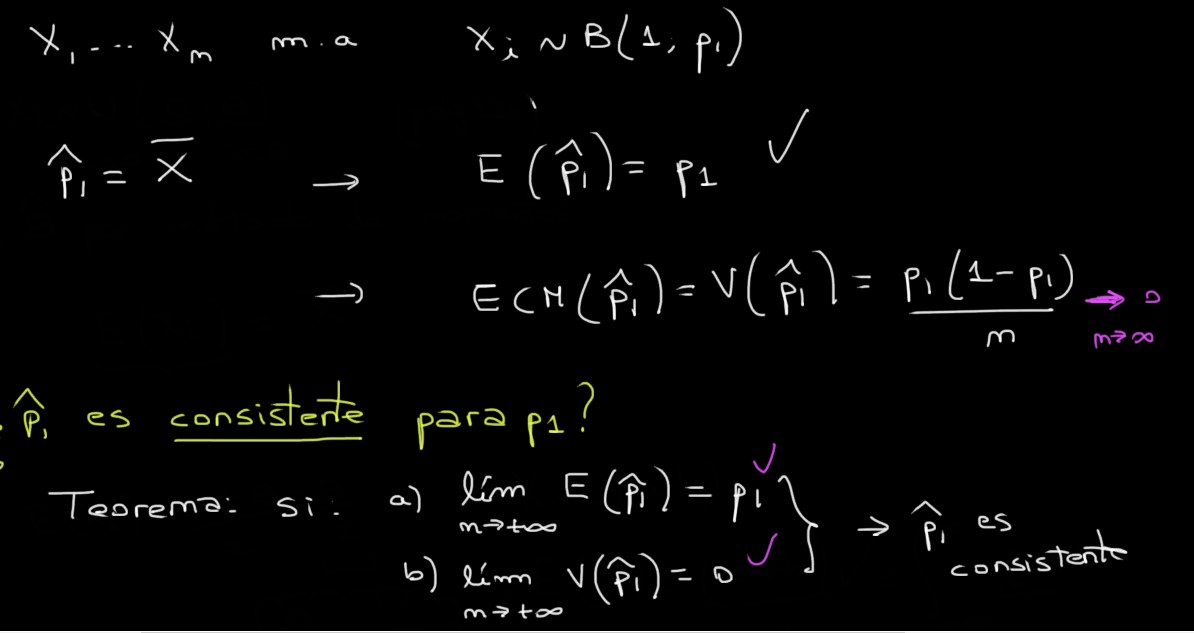 X₁ .... Xₘ m.a Xᵢ ~ B(1, p₁)
p̂₁ = X̅ → E(p̂₁) = p1 ✓
→ ECM(p̂₁) = V(p̂₁) = p₁(1-p₁)/m → 0
m→∞
p̂₁ es consistente para p1?
Teorema: si: a) lím E(p̂₁) = p1 ✓
m→+∞
→ p̂₁ es consistente
b) límn V(p̂₁) = 0 ✓
m→+∞